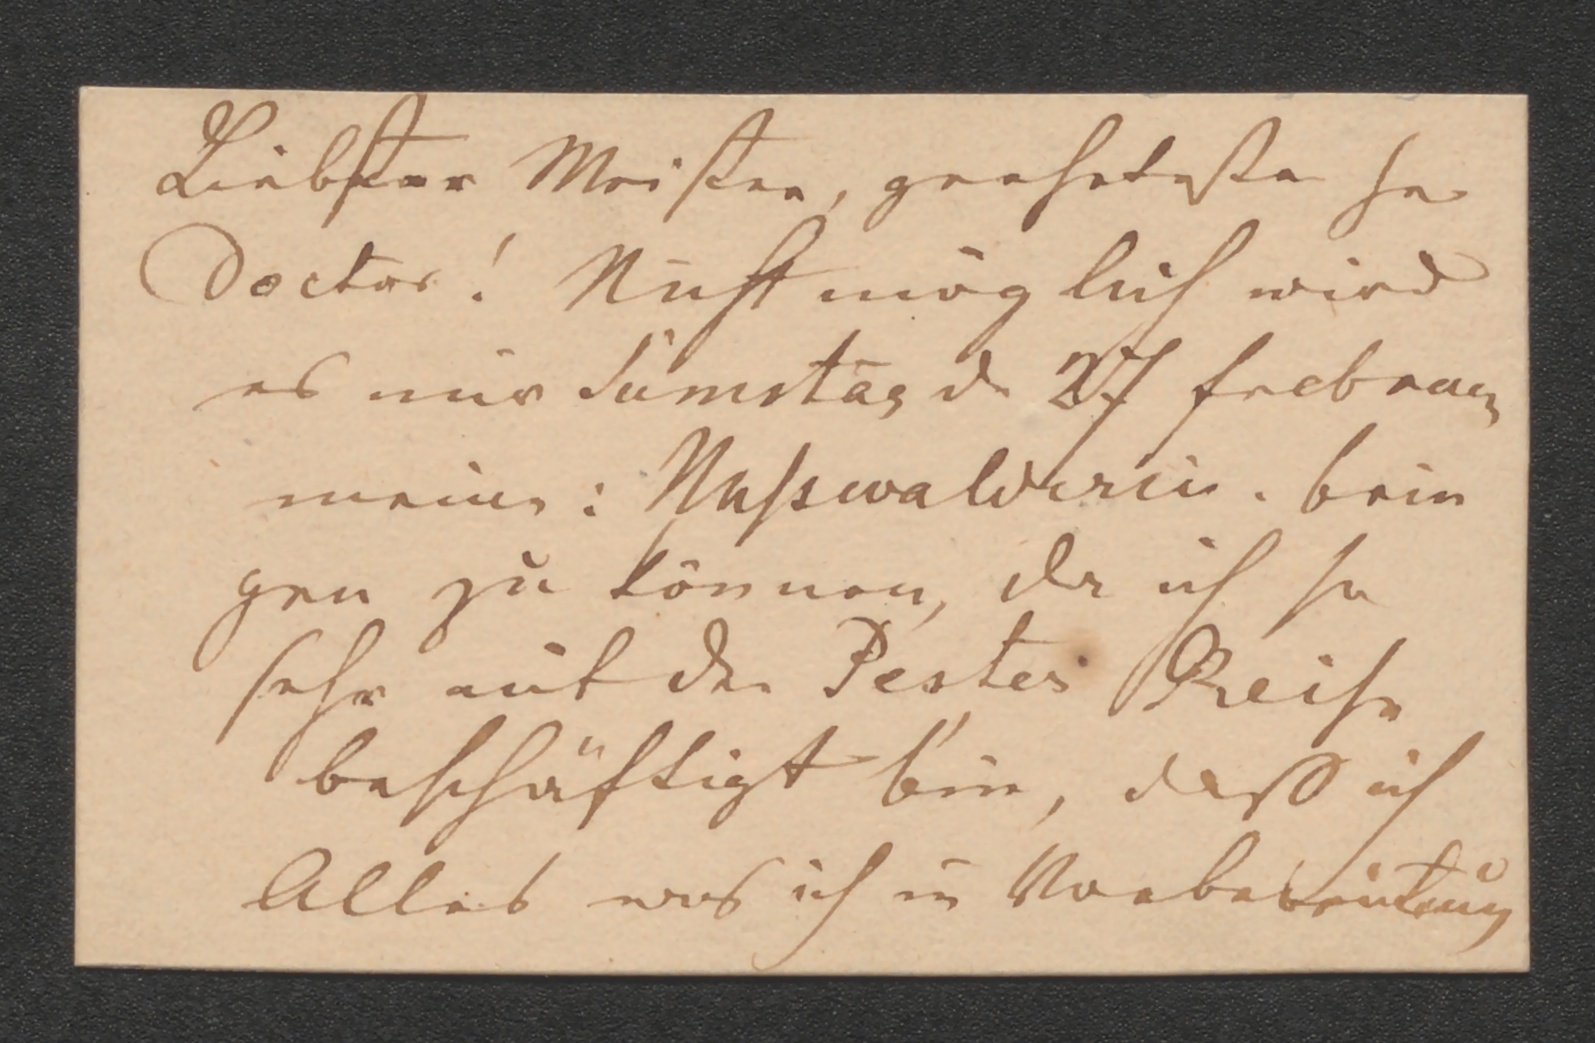 Liebster Meister, geehrtester H
Doctor! Nicht möglich wird
es mir Samstag d 27 Februar
meine: Nusswalderin. brin
gen zu können, da ich so
sehr mit der Pester Reise
beschäftigt bin, daß ich
Alles was ich in Vorbereitung